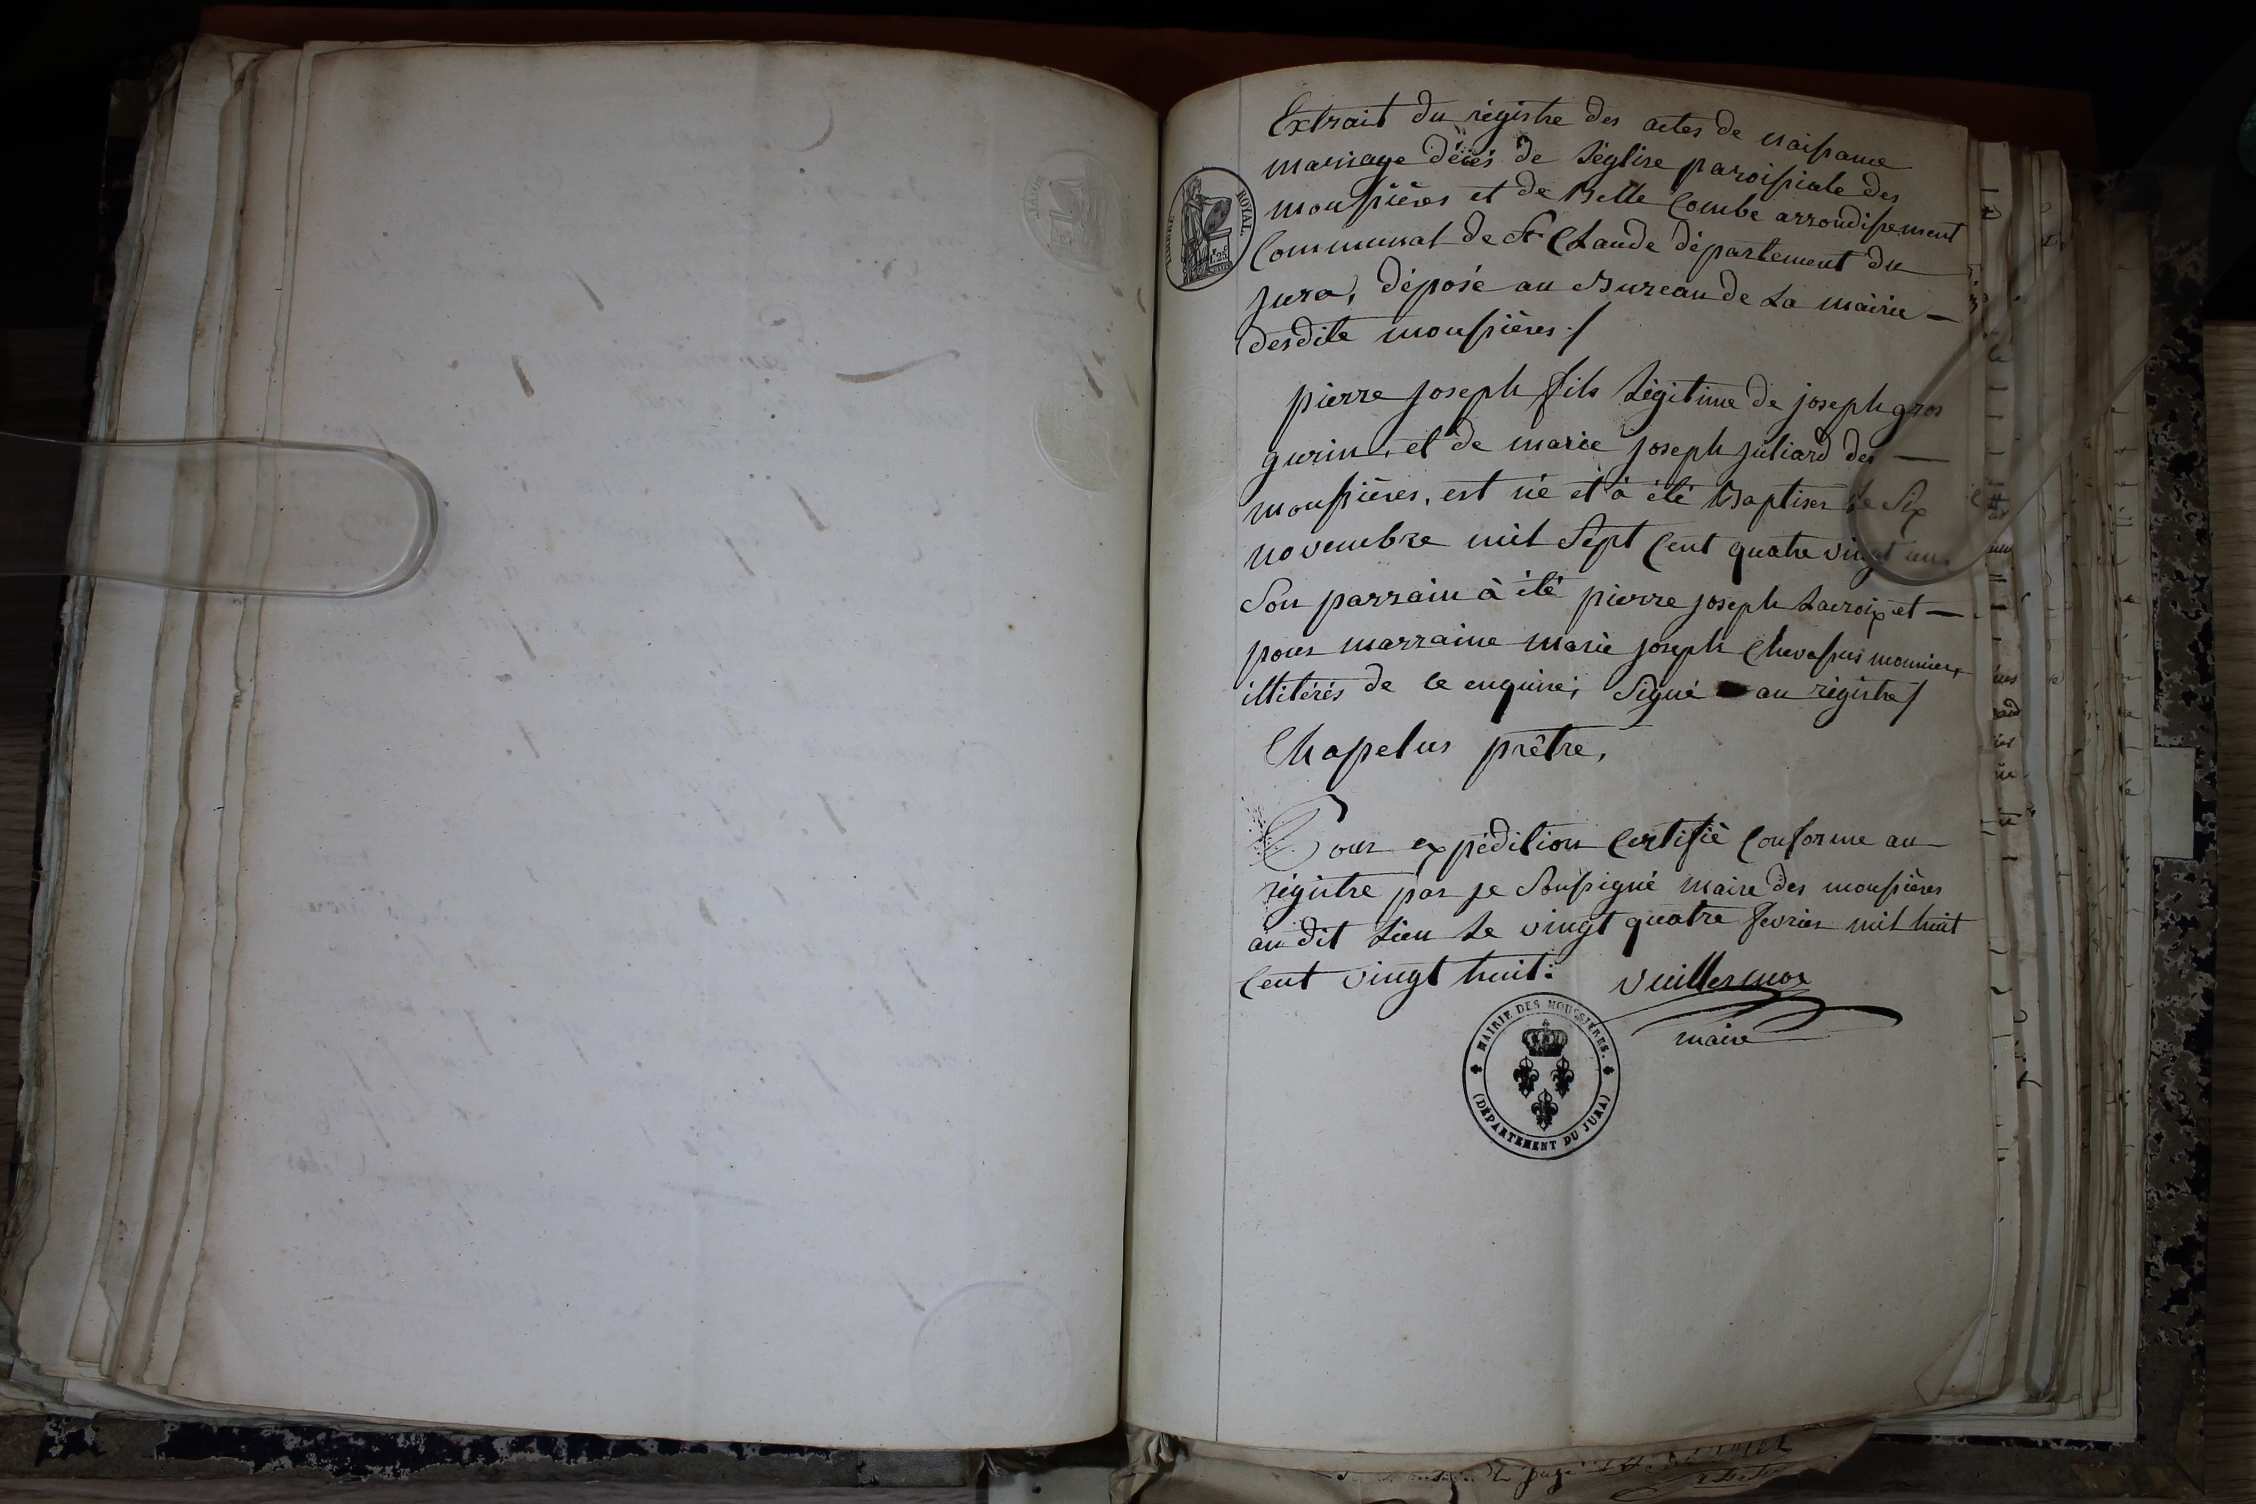 Extrait du régistre des actes de naissance
mariage décès de l'église paroissiale des
moussières et de Belle Combe arrondissement
Communal de St Claude département du
jura, déposé au Bureau de La mairie —
desdite moussières./
TIMBRE ROYAL
pierre joseph fils Légitime de joseph gros
gurin, et de marie joseph juliard des —
moussières, est né et à été Baptiser le Six
novembre mil Sept Cent quatre vingt un
Son parrain à été pierre joseph Lacroix et —
pour marraine marie joseph Chevassus monnier,
illitérés de ce enquiné; Signé au régistre /
Chapelus prêtre,
Pour expédition Certifié Conforme au
régistre par je Soussigné maire des moussières
au dit Lieu Le vingt quatre fevrier mil huit
Cent vingt huit: Vuillermoz
maire
MAIRIE DES MOUSSIÈRES.
(DÉPARTEMENT DU JURA)